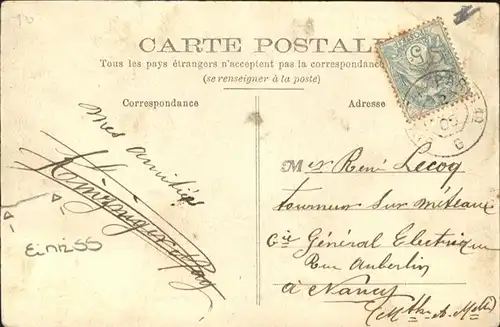 CARTE POSTALE
Tous les pays étrangers n'acceptent pas la correspondance
(se renseigner à la poste)
Correspondance
Adresse
mes amitiés
Mr René Lecoq
tourneur sur méteaux
Cie Général Electrique
Rue Auberlin
à Nancy
(Mthe & Mlle)